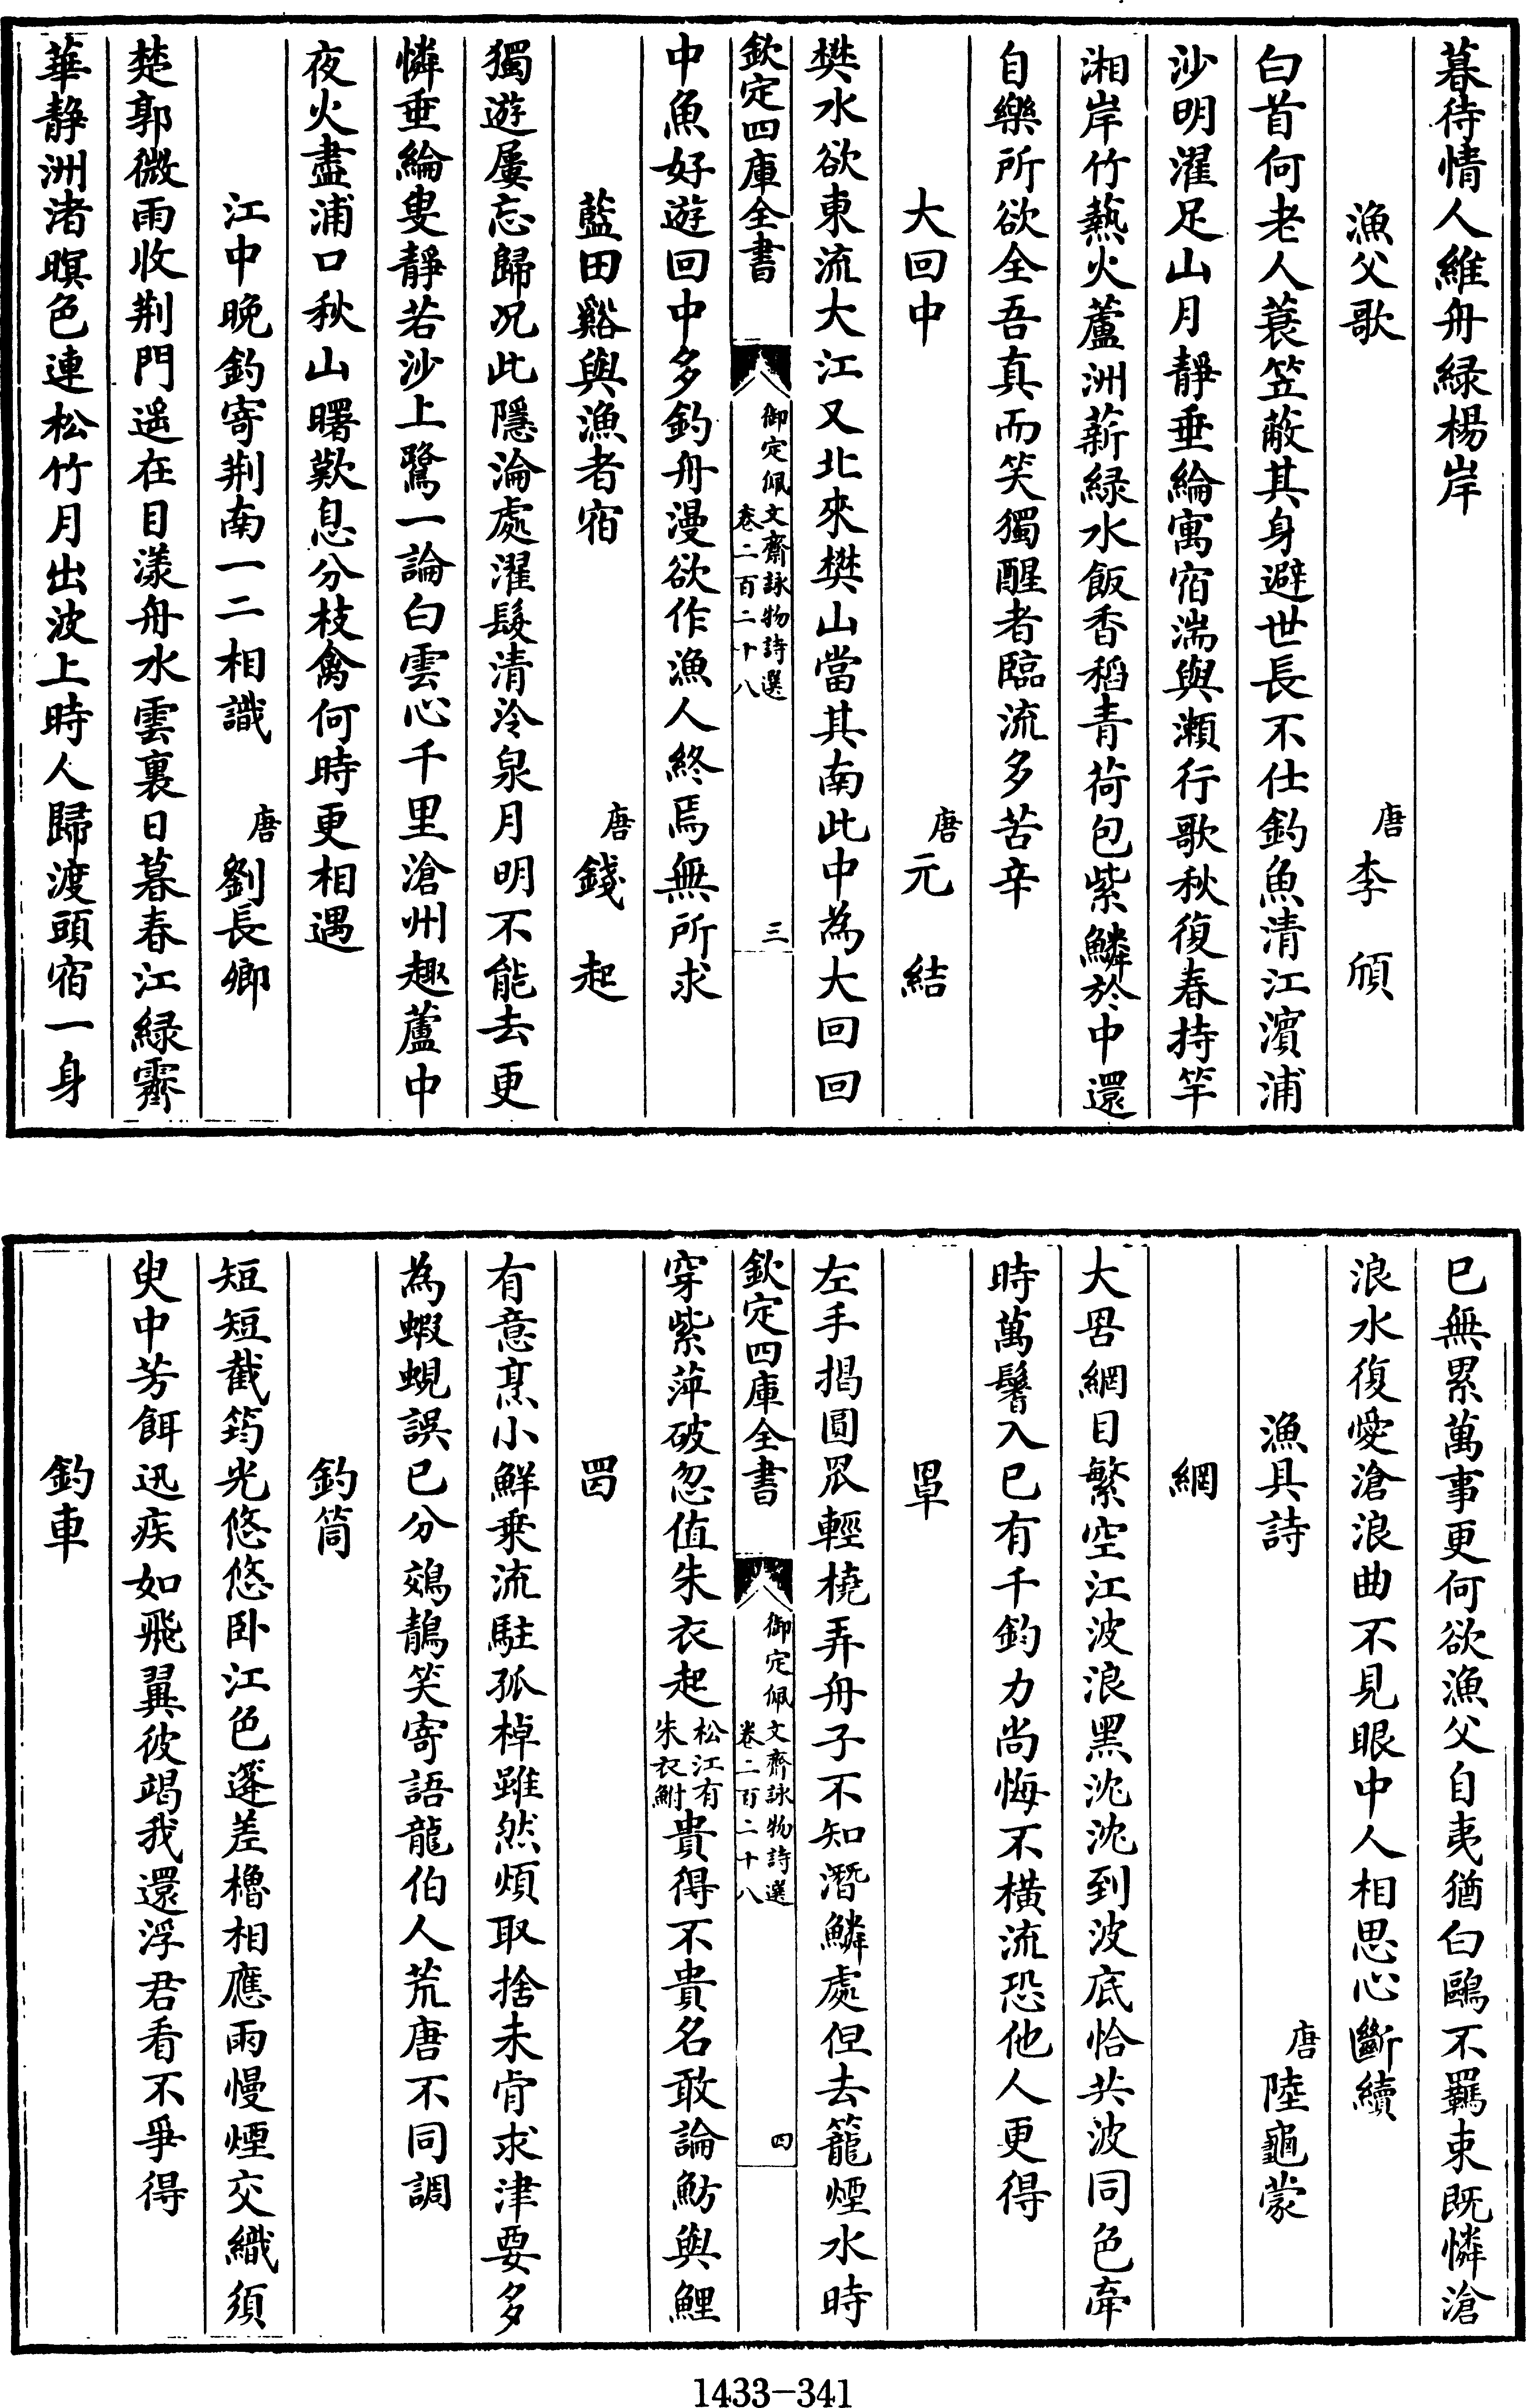 暮待情人維舟緑楊岸
漁父歌　唐李頎
白首何老人蓑笠蔽其身避世長不仕釣魚清江濵浦
沙明濯足山月靜垂綸寓宿湍與瀬行歌秋復春持竿
湘岸竹爇火蘆洲薪緑水飯香稻青荷包紫鱗於中還
自樂所欲全吾真而笑獨醒者臨流多苦辛
大回中　唐元結
樊水欲東流大江又北來樊山當其南此中為大回回
欽定四庫全書　御定佩文齋詠物詩選卷二百二十八　三
中魚好遊回中多釣舟漫欲作漁人終焉無所求
藍田谿與漁者宿　唐錢起
獨遊屢忘歸况此隱淪處濯髮清泠泉月明不能去更
憐垂綸叟靜若沙上鷺一論白雲心千里滄州趣蘆中
夜火盡浦口秋山曙歎息分枝禽何時更相遇
江中晚釣寄荆南一二相識　唐劉長卿
楚郭微雨收荆門遥在目漾舟水雲裏日暮春江緑霽
華靜洲渚暝色連松竹月出波上時人歸渡頭宿一身
已無累萬事更何欲漁父自夷猶白鷗不羈束既憐滄
浪水復愛滄浪曲不見眼中人相思心斷續
漁具詩　唐陸龜蒙
網
大罟網目繁空江波浪黑沈沈到波底恰共波同色牽
時萬鬐入已有千釣力尚悔不橫流恐他人更得
罩
左手揭圓罛輕橈弄舟子不知潛鱗處但去籠煙水時
欽定四庫全書　御定佩文齋詠物詩選卷二百二十八　四
穿紫萍破忽值朱衣起松江有朱衣鮒貴得不貴名敢論魴與鯉
罶
有意烹小鮮乗流駐孤棹雖然煩取捨未肯求津要多
為蝦蜆誤已分鵁鶄笑寄語龍伯人荒唐不同調
釣筒
短短截筠光悠悠卧江色蓬差櫓相應雨慢煙交織須
臾中芳餌迅疾如飛翼彼竭我還浮君看不爭得
釣車
1433-341